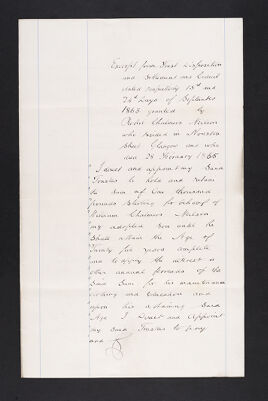 Excerpt from Trust Disposition
and Settlement and Codicil
dated respectively 15th and
24th days of September
1863 granted by
Chalmers Neilson
who resided in Houston
Street Glasgow and who
died 28 February 1865
I direct and appoint my said
Trustees to hold and retain
the sum of One thousand
pounds Sterling for behoof of
William Chalmers Neilson
my adopted Son until he
Shall attain the Age of
Twenty five years complete
and to apply the interest or
other annual proceeds of the
Said Sum for his maintenance
clothing and Education and
upon his attaining said
Age I Direct and Appoint
my Said Trustees to pay
and